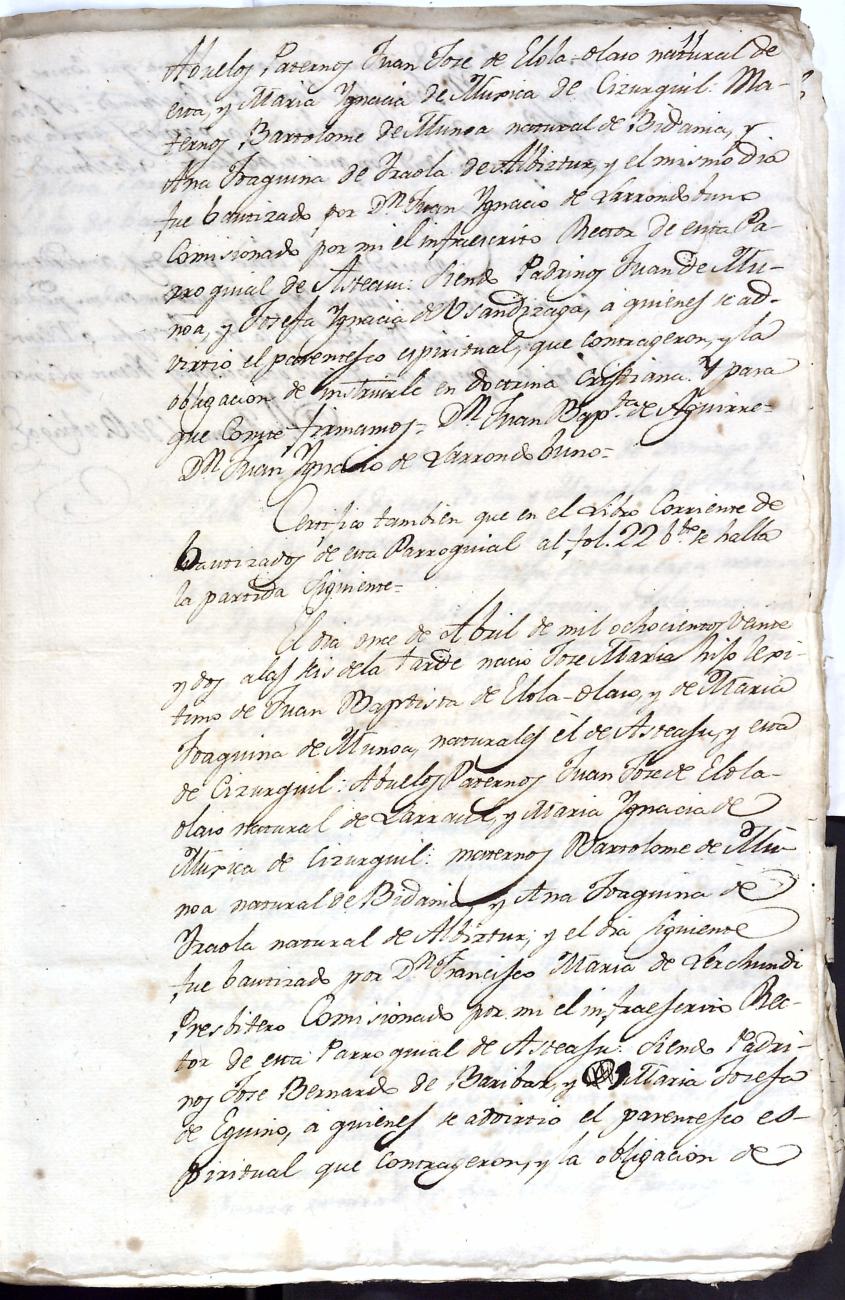 Abuelos Paternos Juan Jose de Elola-olaso natural de
esta, y Maria Ygnacia de Muxica de Cizurquil: Ma-
ternos Bartolome de Munoa natural de Bidania, y
Ana Joaquina de Yraola de Albiztur, y el mismo dia
fue bautizado por Dn. Juan Ygnacio de Larrondobuno
Comisionado por mi el infraescrito Rector de esta Pa-
rroquial de Asteasu: Siendo Padrinos Juan de Mu-
noa, y Josefa Ygnacia de Usandizaga, á quienes se ad-
virtio el parentesco espiritual, que contrageron, y la
obligacion de instruirle en doctrina Cristiana. Y para
que Conste firmamos = Dn. Juan Bapta. de Aguirre =
Dn. Juan Ygnacio de Larrondobuno =
Certifico tambien que en el Libro Corriente de
Bautizados de esta Parroquial al fol. 22 bto. se halla
la partida Siguiente =
El dia once de Abril de mil ochocientos veinte
y dos a las seis de la tarde nacio Jose Maria hijo lexi-
timo de Juan Baptista de Elola-olaso, y de Maria
Joaquina de Munoa, naturales él de Asteasu, y esta
de Cizurquil: Abuelos Paternos Juan Jose de Elola-
olaso natural de Larraul, y Maria Ygnacia de
Muxica de Cizurquil: maternos Bartolome de Mu-
noa natural de Bidania, y Ana Joaquina de
Yraola natural de Albiztur; y el dia Siguiente
fue bautizado por Dn. Francisco Maria de Lerchundi
Presbitero Comisionado por mi el infraescrito Rec-
tor de esta Parroquial de Asteasu: Siendo Padri-
nos Jose Bernardo de Baribar, y Maria Josefa
de Eguino, á quienes se advirtio el parentesco es-
piritual que Contrageron, y la obligacion de